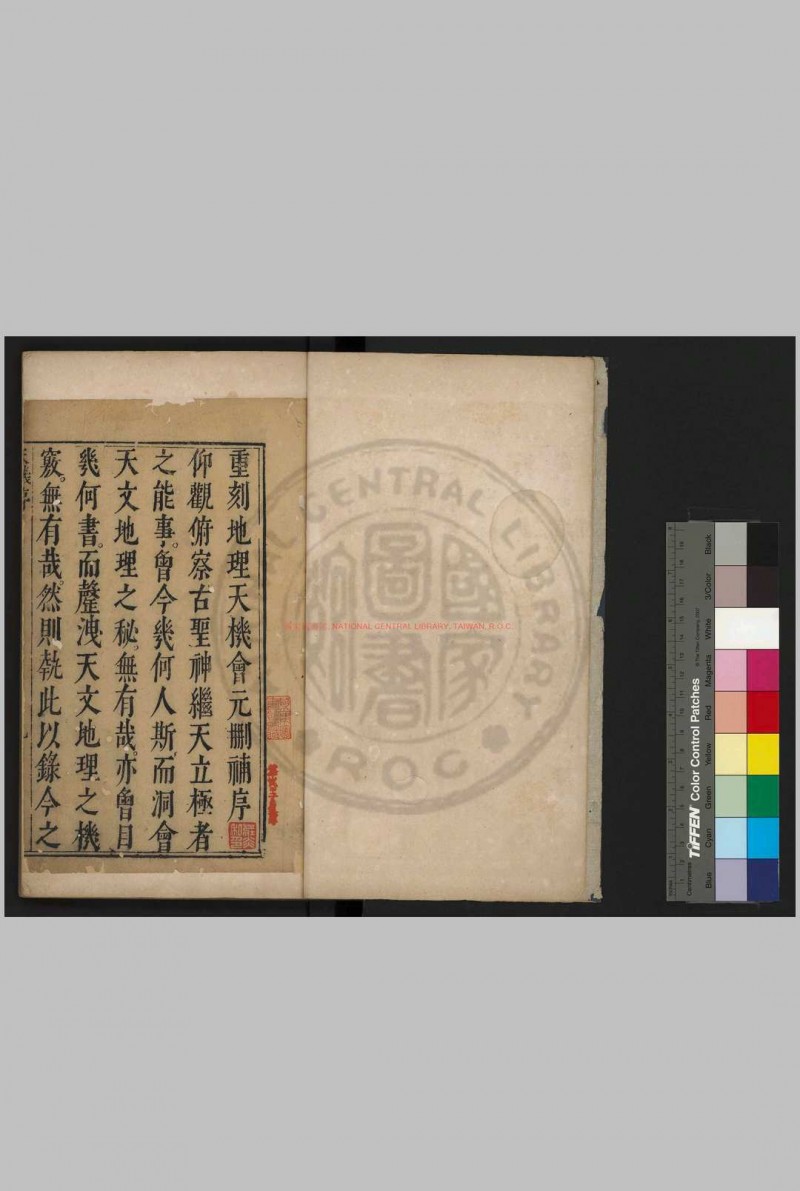 重刻地理天機會元刪補序
仰觀俯察古聖神繼天立極者
之能事。曾今幾何人斯。而洞會
天文地理之秘。無有哉。亦曾目
幾何書。而罄洩天文地理之機
竅。無有哉。然則執此以錄今之
國家圖書
NATIONAL CENTRAL LIBRARY
ROC
NATIONAL CENTRAL LIBRARY, TAIWAN, R.O.C.
TIFFEN Color Control Patches
© The Tiffen Company
Centimetres
Blue
Cyan
Green
Yellow
Red
Magenta
White
3/Color
Black